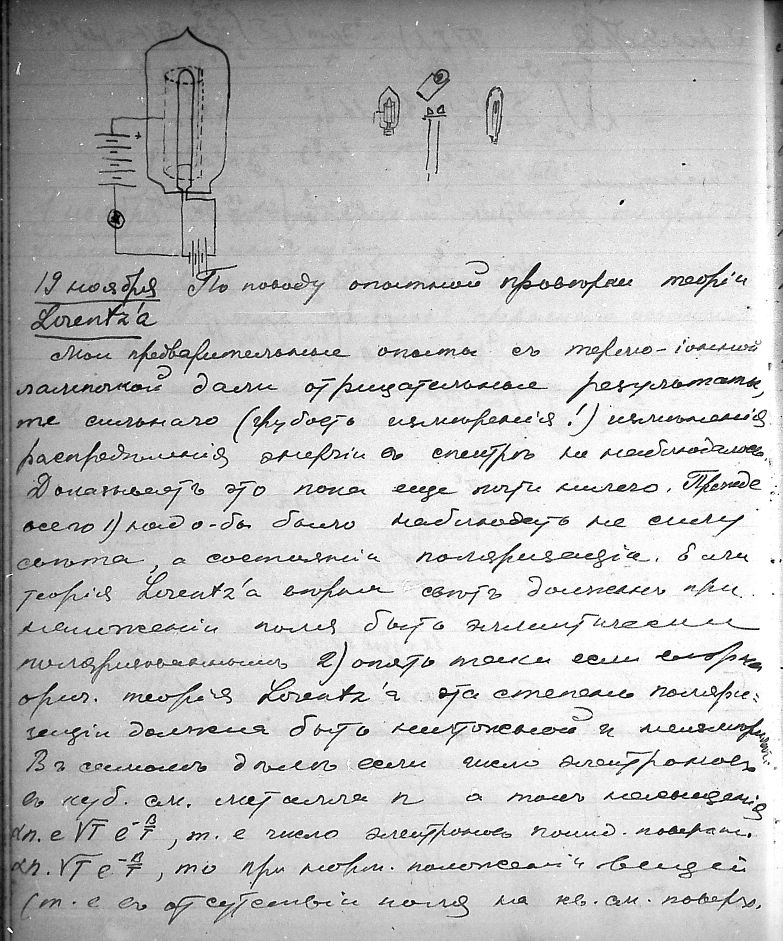 19 ноября По поводу опытной проверки теорiи
Lorentz'a
Мои предварительные опыты съ термо-iонной
лампочкой дали отрицательные результаты,
сильнаго (грубость измѣренiя!) измѣненiя
распредѣленiя энергiи въ спектрѣ не наблюдалось.
Доказываетъ это пока еще почти ничего. Прежде
всего 1) надо-бы было наблюдать не силу
свѣта, а состоянiи поляризацiи. Если
теорiя Lorentz'a вѣрна свѣтъ долженъ при
наложенiи поля быть эллиптически
поляризованнымъ 2) опять таки если вѣрна
ориг. теорiя Lorentz'a эта степень поляри-
зацiи должна быть ничтожной и неизмѣримой.
Въ самомъ дѣлѣ если число электроновъ
въ куб. см. металла n а токъ насыщенiя
αn.e √T e^{-b/T}, т. е число электроновъ
αn.√T e^{-b/T}, то при норм. положенiи вещей
(т. е въ отсутствiи поля на кв. см. поверхн.